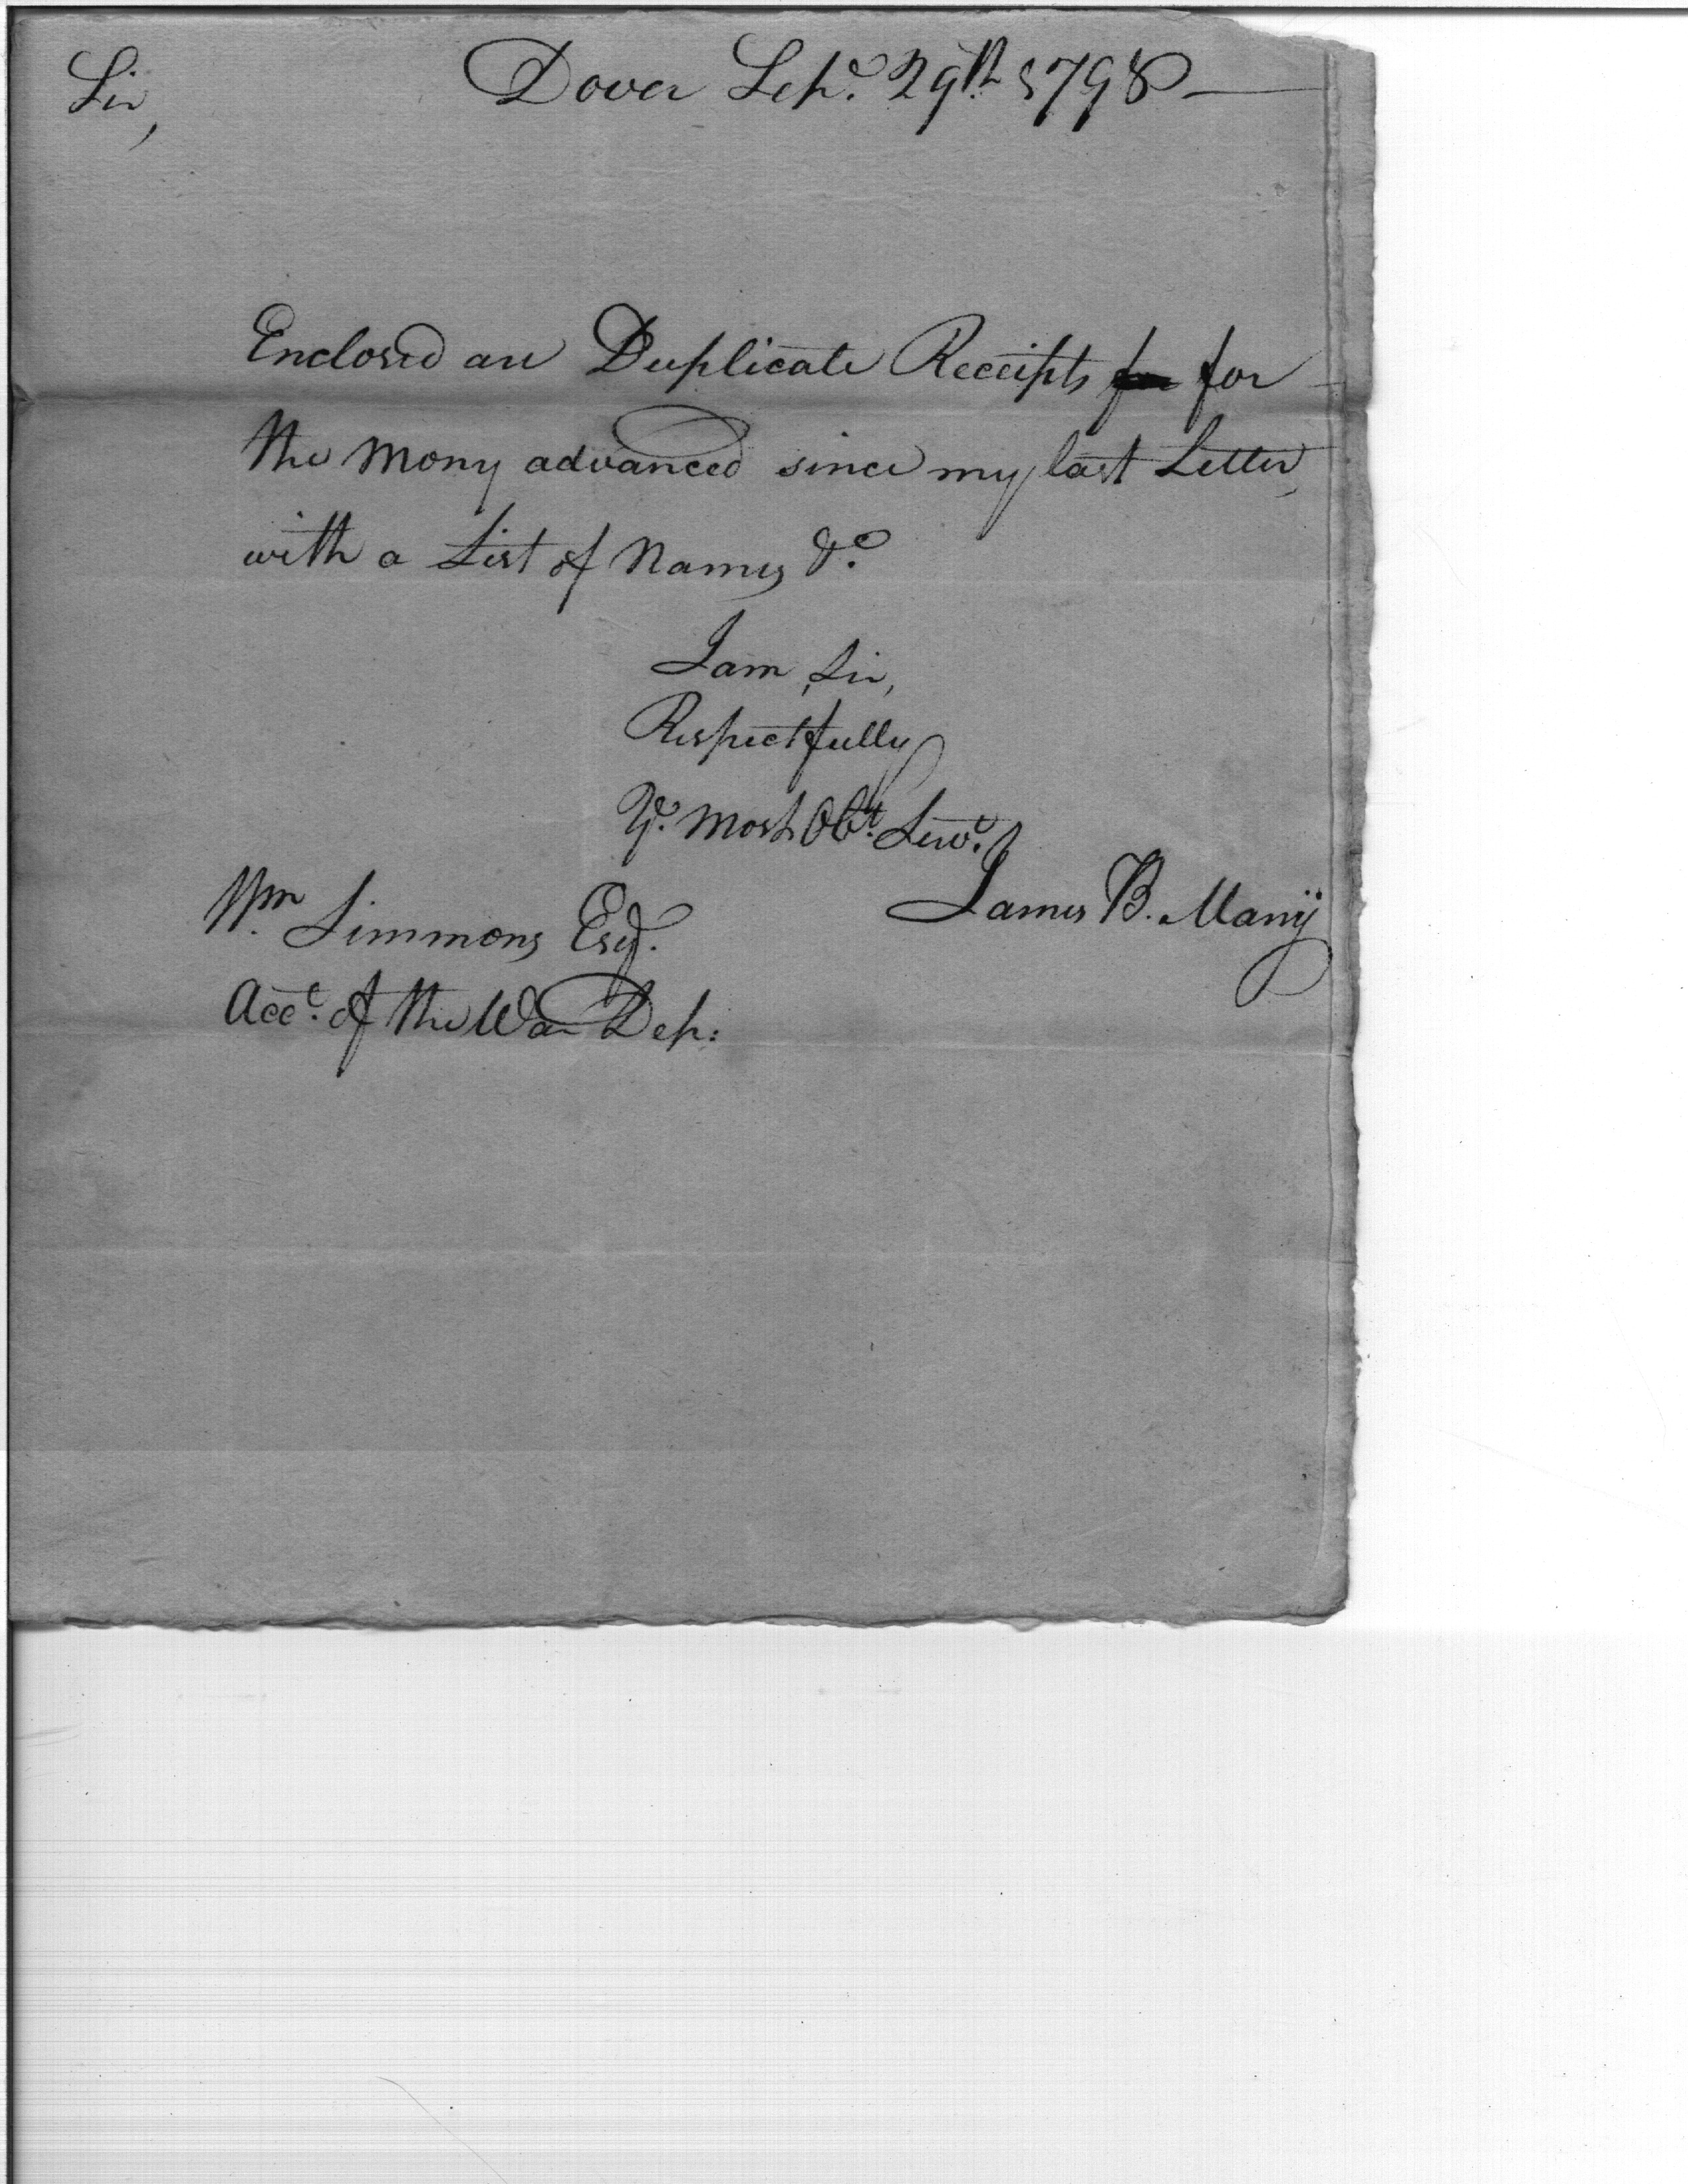 Sir, Dover Sept. 29th 1798
Enclosed are Duplicate Receipts for for
the Mony advanced since my last Letter,
with a List of Names &c.
I am, Sir,
Respectfully
Yr. Most Obt. Servt.
James B. Many
Wm. Simmons Esqr.
Acct. of the War Dep: